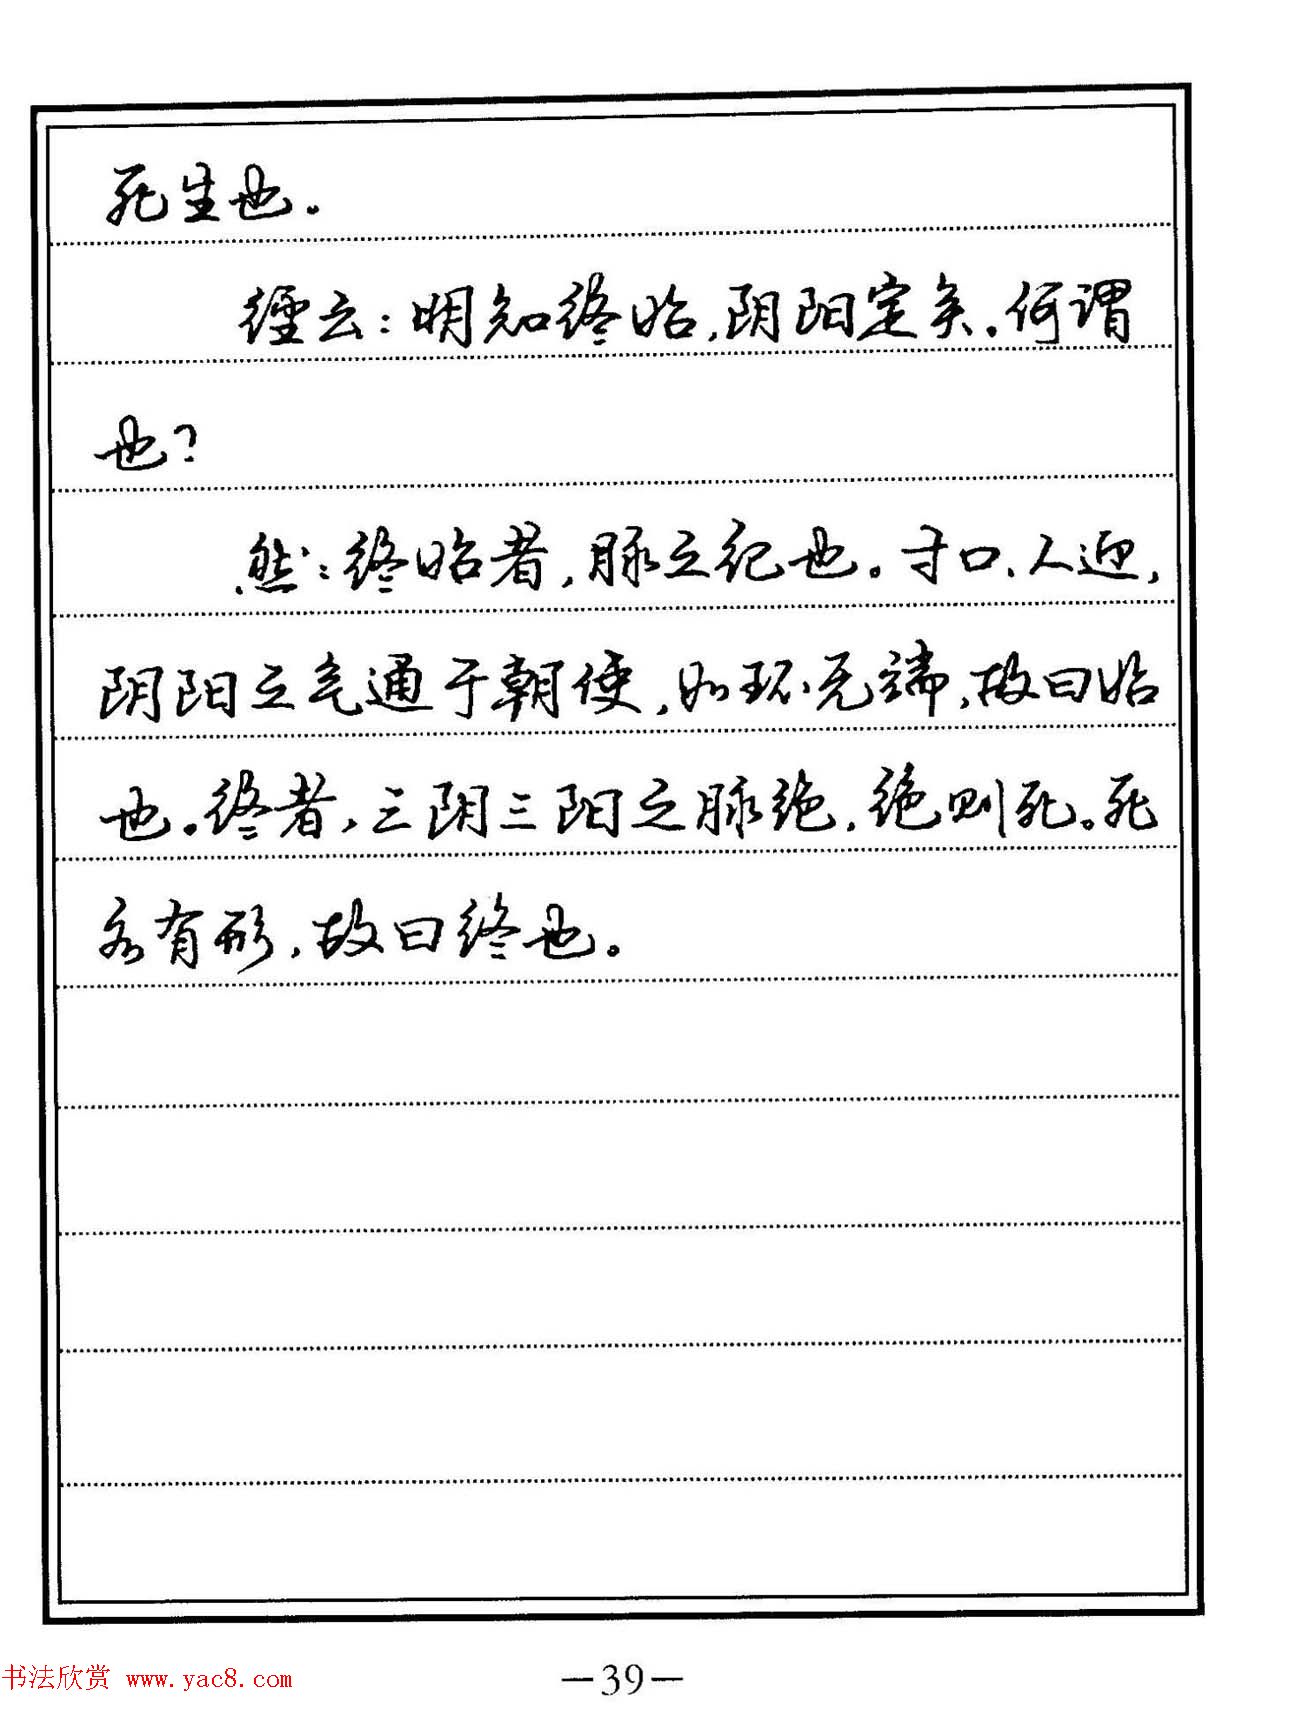 死生也。
经云：明知终始，阴阳定矣。何谓
也？
然：终始者，脉之纪也。寸口、人迎，
阴阳之气通于朝使，如环无端，故曰始
也。终者，三阴三阳之脉绝，绝则死。死
各有形，故曰终也。
书法欣赏 www.yac8.com
—39—